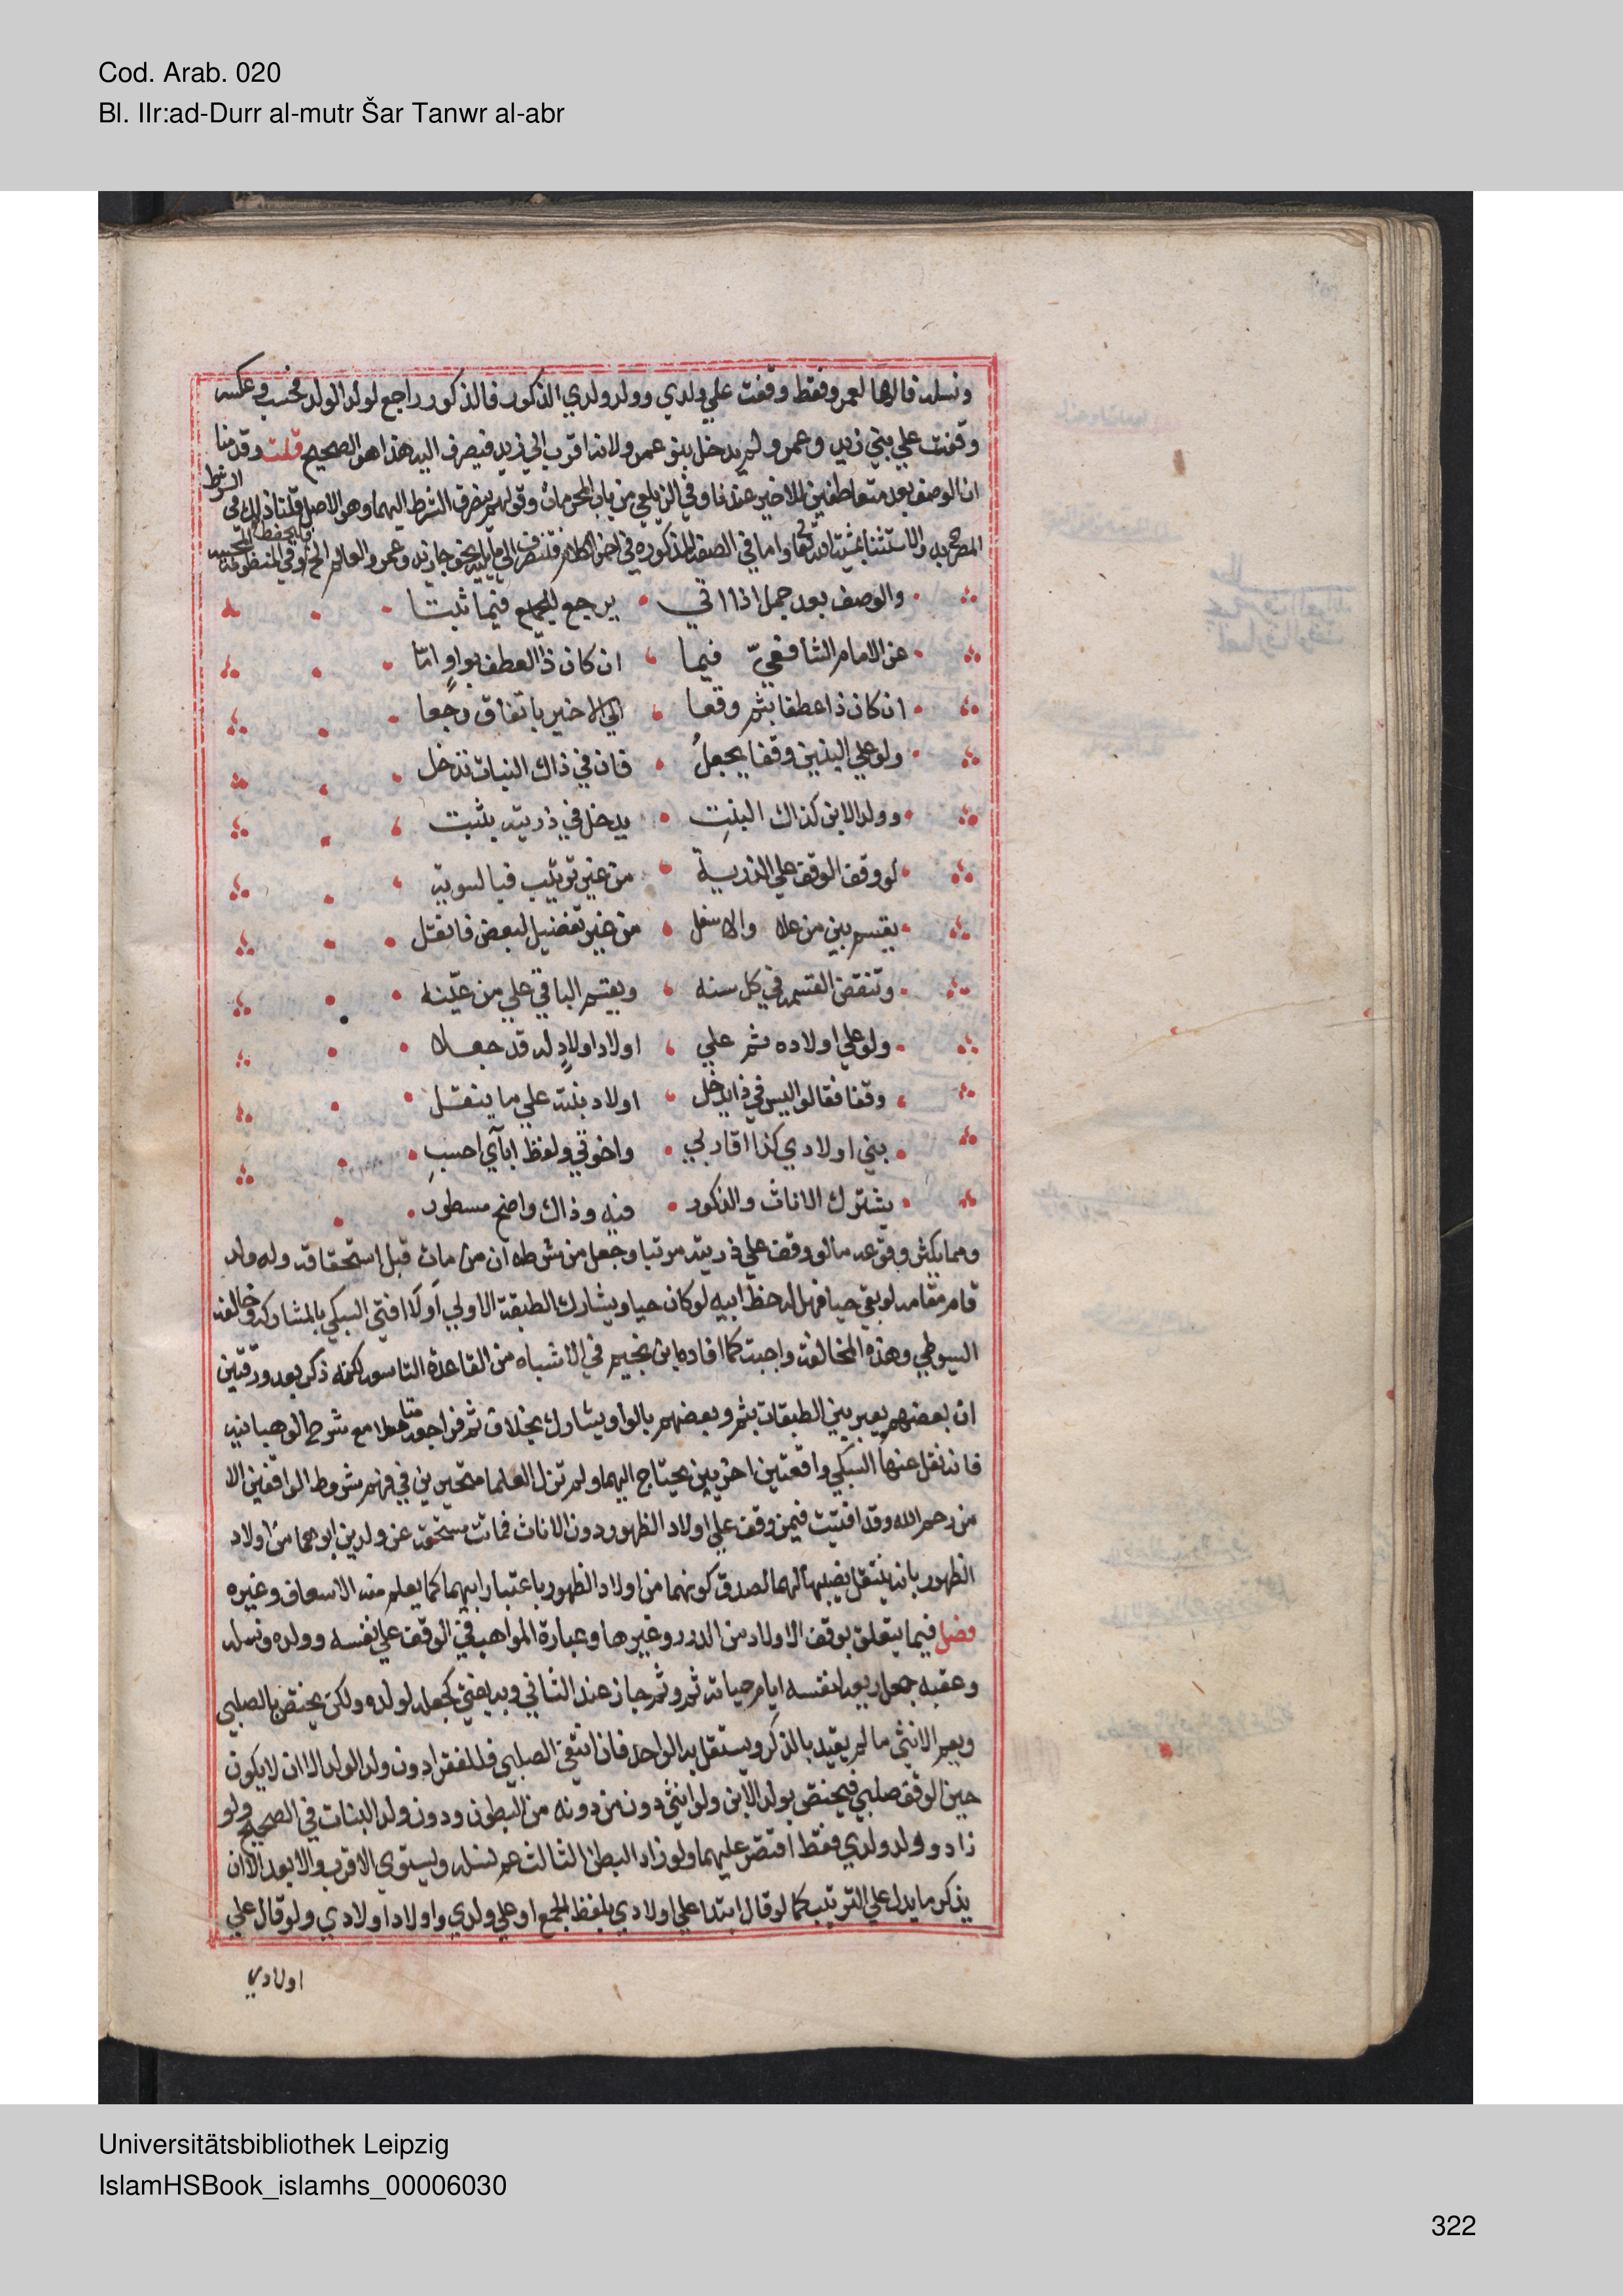 Cod. Arab. 020
Bl. IIr:ad-Durr al-mutr Šar Tanwr al-abr
ونسله فالهاء لعمرو فقط وقفت علي ولدي وولد ولدي الذكور فالذكور راجع لولد الولد فحسب وعكسه
وقفت علي بني زيد وعمرو لم يدخل بنو عمرو لانه اقرب الي زيد فيصرف اليه هذا هو الصحيح قلت وقدمنا
ان الوصف بعد متعاطفين للاخير عندنا وفي الزيلعي من باب المحرمات وقولهم ينصرف الشرط اليهما وهو الاصل قلنا ذلك في الشرط
المصرح به والاستثنا بمشيئة الله تعالي واما في الصفة المذكورة في اخر الكلام فتنصرف الي ما يليه نحو جا زيد وعمرو العالم الخ فليحفظ وفي المنظومة المحبية
والوصف بعد جمل اذا اتي يرجع للجميع فيما ثبتا
عن الامام الشافعيّ فيما ان كان ذا العطف بواوٍ امّا
ان كان ذا عطفا بثم وقعا الي الاخير باتفاق رجعا
ولو علي البنين وقفا يجعلُ فان في ذاك البنات تدخل
وولد الابن كذاك البنتِ يدخل في ذريته يثبت
لو وقف الوقف علي الذرية من غير ترتيب فبالسوية
يقسم بين من علا والاسفل من غير تفضيل لبعض فانقل
وتنقض القسمة في كل سنه ويقسم الباقي علي من عيّنه
ولو علي اولاده ثم علي اولاد اولادٍ له قد جعلا
وقفا فقالوا ليس في ذا يدخل اولاد بنته علي ما ينقل
بني اولادي كذا اقاربي واخوتي ولفظ ابآي احسبِ
يشترك الاناث والذكور فيه وذاك واضح مسطور
ومما يكثر وقوعه مالو وقف علي ذريته مرتبا وجعل من شرطه ان من مات قبل استحقاقه وله ولد
قام مقامه لو بقي حيا فهل له حظ ابيه لو كان حيا ويشارك الطبقة الاولي اولا افتي السبكي بالمشاركة وخالفه
السيوطي وهذه المخالفة واجبة كما افاده ابن نجيم في الاشباه من القاعدة التاسعة لكنه ذكر بعد ورقتين
ان بعضهم يعبر بين الطبقات بثم وبعضهم بالواو يشارك بخلاف ثم فراجعه متاملا مع شرح الوهبانية
فانه نقل عنها السبكي واقعتين اخريين يحتاج اليهما ولم تزل العلما متحيرين في فهم شروط الواقفين الا
من رحم الله وقد افتيت فيمن وقف علي اولاد الظهور دون الاناث فماتت مستحقة عن ولدين ابوهما من اولاد
الظهور بانه ينتقل نصيبها لهما لصدق كونهما من اولاد الظهور باعتبار ابيهما كما يعلم من الاسعاف وغيره
فصل فيما يتعلق بوقف الاولاد من الدرر وغيرها وعبارة المواهب في الوقف علي نفسه وولده ونسله
وعقبه جعل ريعه لنفسه ايام حياته ثم وثم جاز عند الثاني وبه يفتي كجعله لولده ولكن يختص بالصلبي
ويعم الانثي ما لم يقيد بالذكر ويستقل به الواحد فان انتفي الصلبي فللفقرا دون ولد الولد الا ان لا يكون
حين الوقف صلبي فيختص بولد الابن ولو انثي دون من دونه من البطون ودون ولد البنات في الصحيح ولو
زاد وولد ولدي فقط اقتصر عليهما ولو زاد البطن الثالث عم نسله ويستوي الاقرب والابعد الا ان
يذكر ما يدل علي الترتيب كما لو قال ابتدا علي اولادي بلفظ الجمع او علي ولدي واولاد اولادي ولو قال علي
اولادي
Universitätsbibliothek Leipzig
IslamHSBook_islamhs_00006030
322